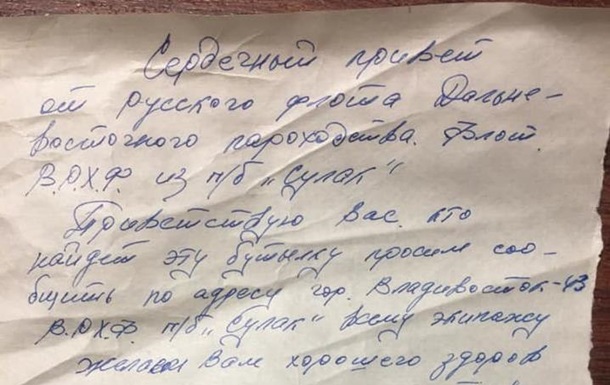 Сердечный привет
от русского флота Дальне-
восточного пароходства. Флот.
В.Р.Х.Ф. из п/б "Сулак"
Приветствую Вас кто
найдет эту бутылку просим соо-
бщить по адресу гор. Владивосток-43
В.Р.Х.Ф. п/б "Сулак" всему экипажу
желаем Вам хорошего здоров